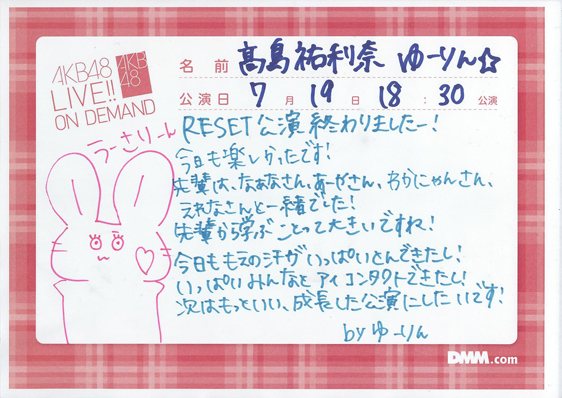 AKB48
LIVE!!
ON DEMAND
AKB
48
名 前 髙島祐利奈 ゆーりん☆
公演日 7 月 19 日 18 : 30 公演
うーさりーん
RESET公演終わりましたー!
今日も楽しかったです!
先輩は、なぁなさん、あーやさん、わかにゃんさん、
えれなさんと一緒でした!
先輩から学ぶことって大きいですね!
今日ももえの汗がいっぱいとんできたし!
いっぱいみんなとアイコンタクトできたし!
次はもっといい、成長した公演にしたいです!
by ゆーりん
DMM.com